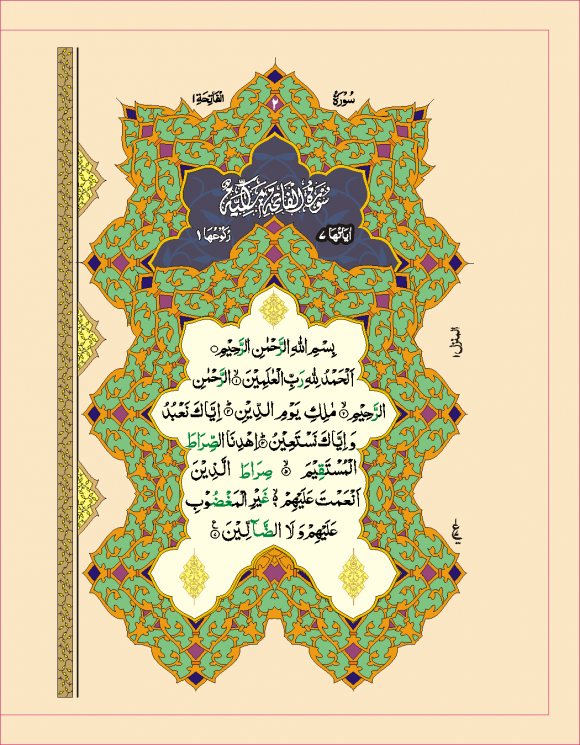 سُوْرَةُ
٢
اَلْفَاتِحَةِ ١
سُوْرَةُ الْفَاتِحَةِ مَكِّيَّةٌ
اٰيَاتُهَا ٧
رُكُوْعُهَا ١
بِسْمِ اللّٰهِ الرَّحْمٰنِ الرَّحِيْمِ ○
اَلْحَمْدُ لِلّٰهِ رَبِّ الْعٰلَمِيْنَ ۙ﴿١﴾ الرَّحْمٰنِ
الرَّحِيْمِ ۙ﴿٢﴾ مٰلِكِ يَوْمِ الدِّيْنِ ؕ﴿٣﴾ اِيَّاكَ نَعْبُدُ
وَ اِيَّاكَ نَسْتَعِيْنُ ؕ﴿٤﴾ اِهْدِنَا الصِّرَاطَ
الْمُسْتَقِيْمَ ۙ﴿٥﴾ صِرَاطَ الَّذِيْنَ
اَنْعَمْتَ عَلَيْهِمْ ۙ﴿٦﴾ غَيْرِ الْمَغْضُوْبِ
عَلَيْهِمْ وَ لَا الضَّآلِّيْنَ ﴿٧﴾
المنزل ١